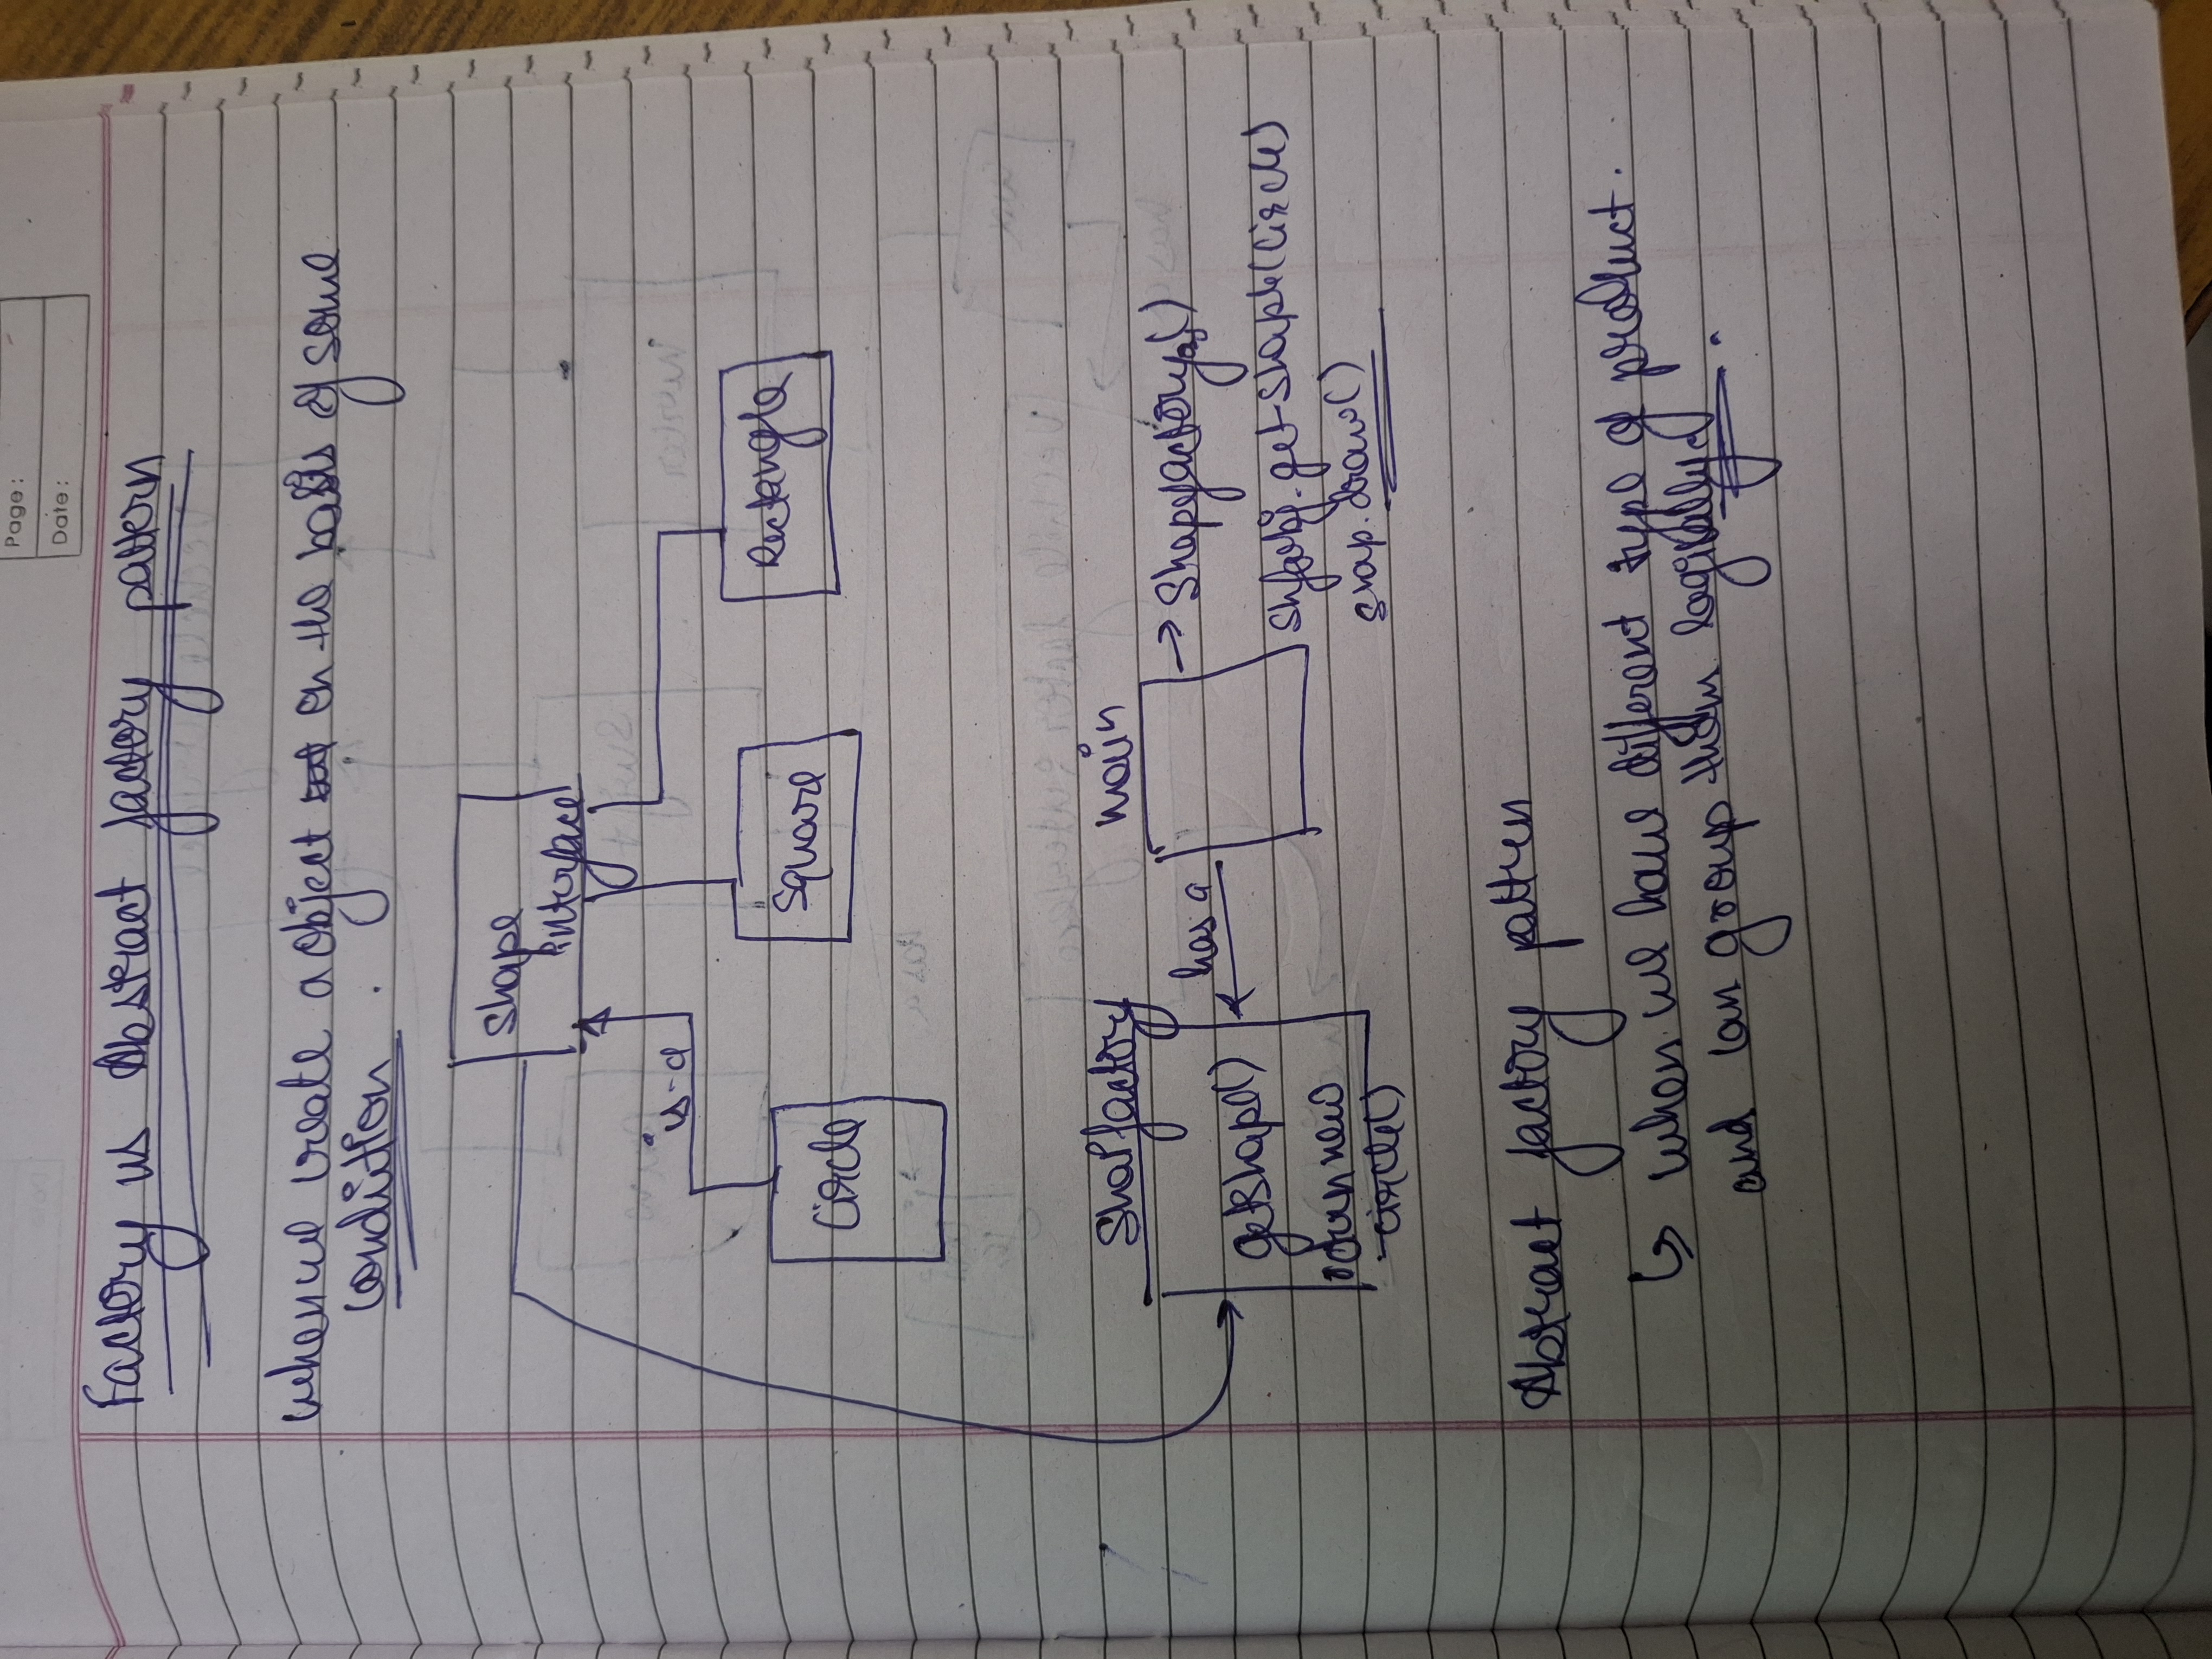 Page :
Date :
Factory vs Abstract factory pattern
when we create a object on the basis of some
condition .
Shape
interface
is-a
Circle
Square
Rectangle
Shapfactory
main
has a
getshape()
return new
circle()
→ Shapefactory()
get-shape(circle)
shap.draw()
Abstract factory pattren
↳ when we have different type of product.
and can group them logically.